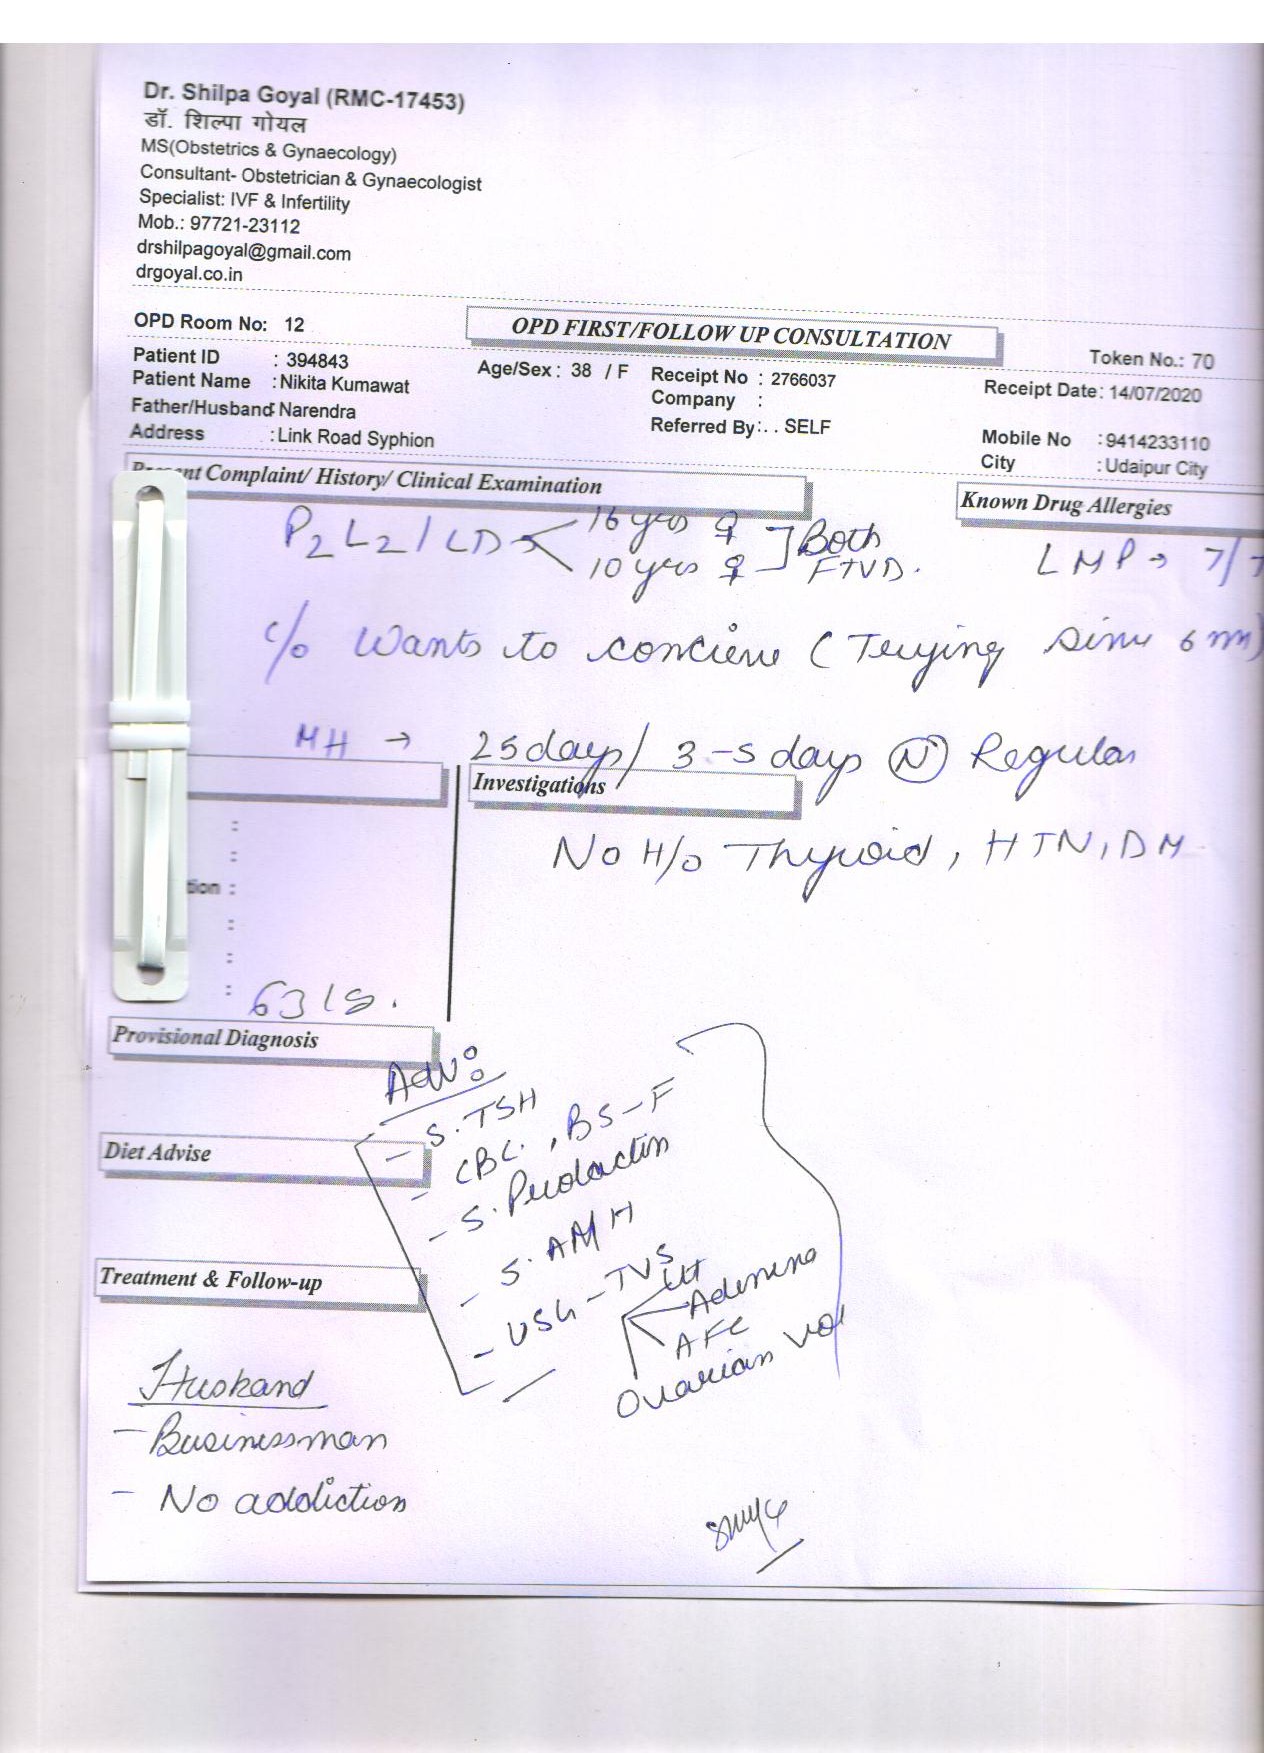 Dr. Shilpa Goyal (RMC-17453)
डॉ. शिल्पा गोयल
MS(Obstetrics & Gynaecology)
Consultant- Obstetrician & Gynaecologist
Specialist: IVF & Infertility
Mob.: 97721-23112
drshilpagoyal@gmail.com
drgoyal.co.in
OPD Room No: 12
OPD FIRST/FOLLOW UP CONSULTATION
Token No.: 70
Patient ID : 394843
Age/Sex : 38 / F
Receipt No : 2766037
Receipt Date: 14/07/2020
Patient Name : Nikita Kumawat
Company :
Father/Husband Narendra
Referred By : . . SELF
Mobile No : 9414233110
Address : Link Road Syphion
City : Udaipur City
nt Complaint/ History/ Clinical Examination
Known Drug Allergies
P2L2/LD 16 yrs ♀ Both
10 yrs ♀ FTVD.
LMP → 7/7
c/o Wants to concieve (Trying since 6 m)
MH → 25 days/ 3-5 days (N) Regular
Investigations
No H/o Thyroid, HTN, DM
tion :
Provisional Diagnosis
Adv:
- S. TSH
- CBC, BS-F
- S. Prolactin
- S. AMH
- USG-TVS
Ut
Adenexa
AFC
Ovarian vol
Diet Advise
Treatment & Follow-up
Husband
- Businessman
- No addiction